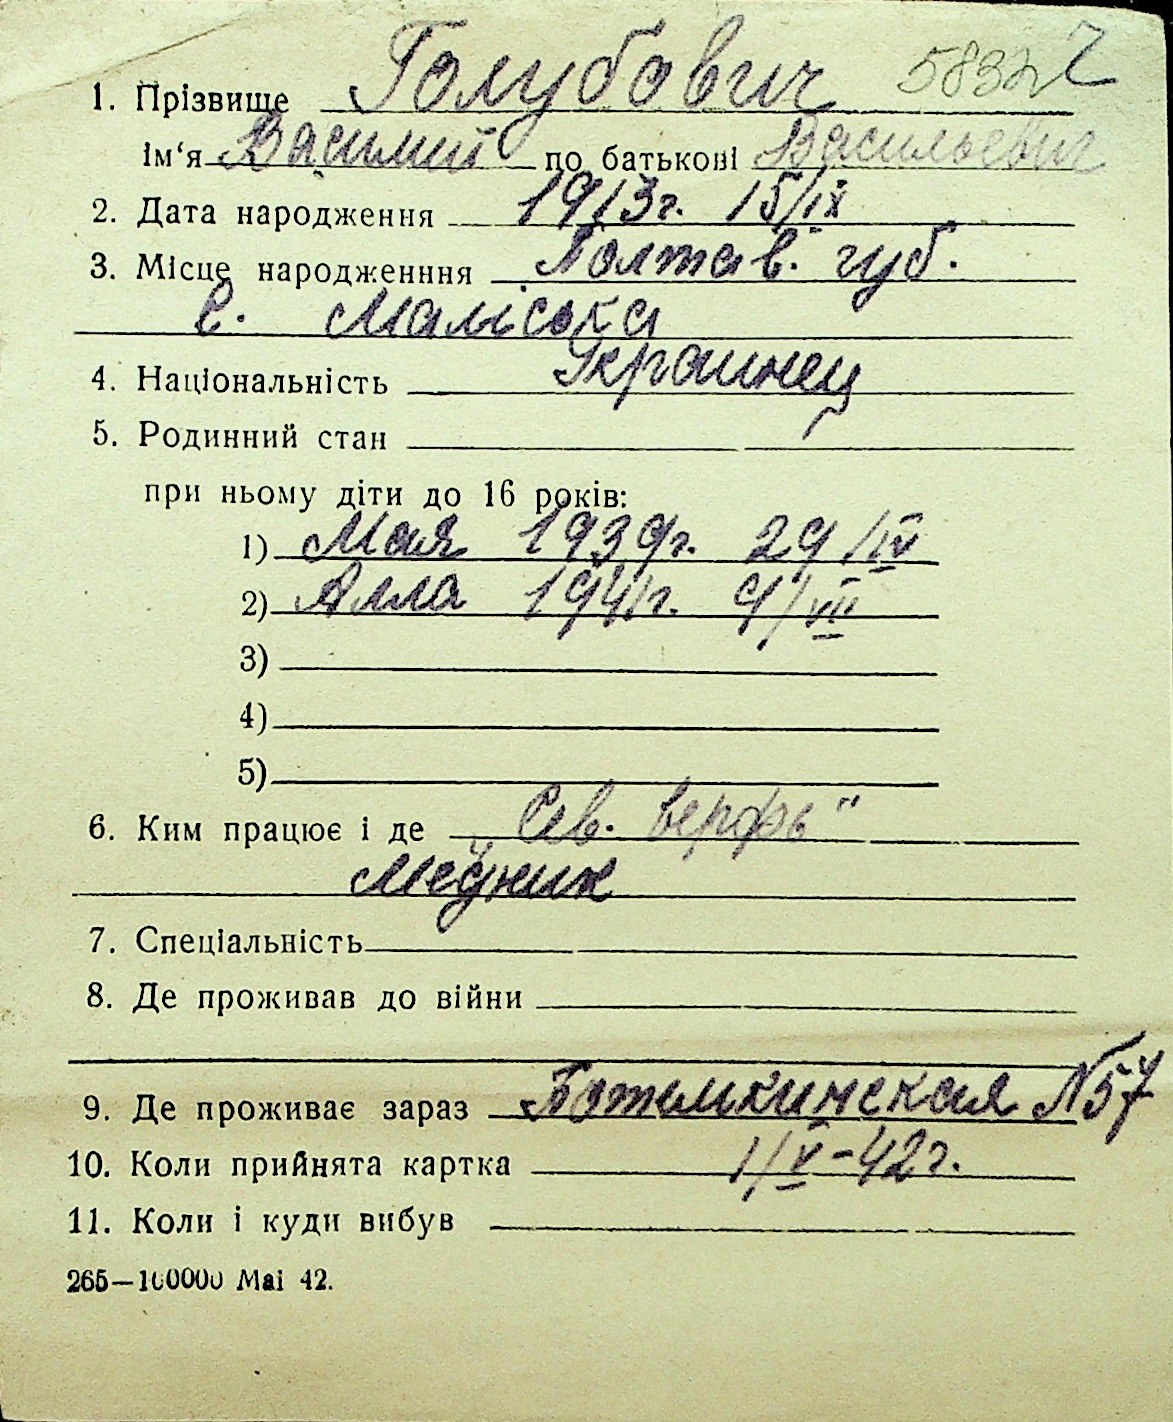 58322
1. Прізвище Голубович
Ім‘я Василий по батькові Васильевич
2. Дата народження 1913г. 15/IX
3. Місце народженння Полтав. губ.
с. Маліська
4. Національність Украинец
5. Родинний стан
при ньому діти до 16 років:
1) Мая 1939г. 29/IV
2) Алла 1941г. 9/VII
3)
4)
5)
6. Ким працює і де „Сев. верфь"
Медник
7. Спеціальність
8. Де проживав до війни
9. Де проживає зараз Потемкинская №57
10. Коли прийнята картка 1/V-42г.
11. Коли і куди вибув
265—100000 Mai 42.